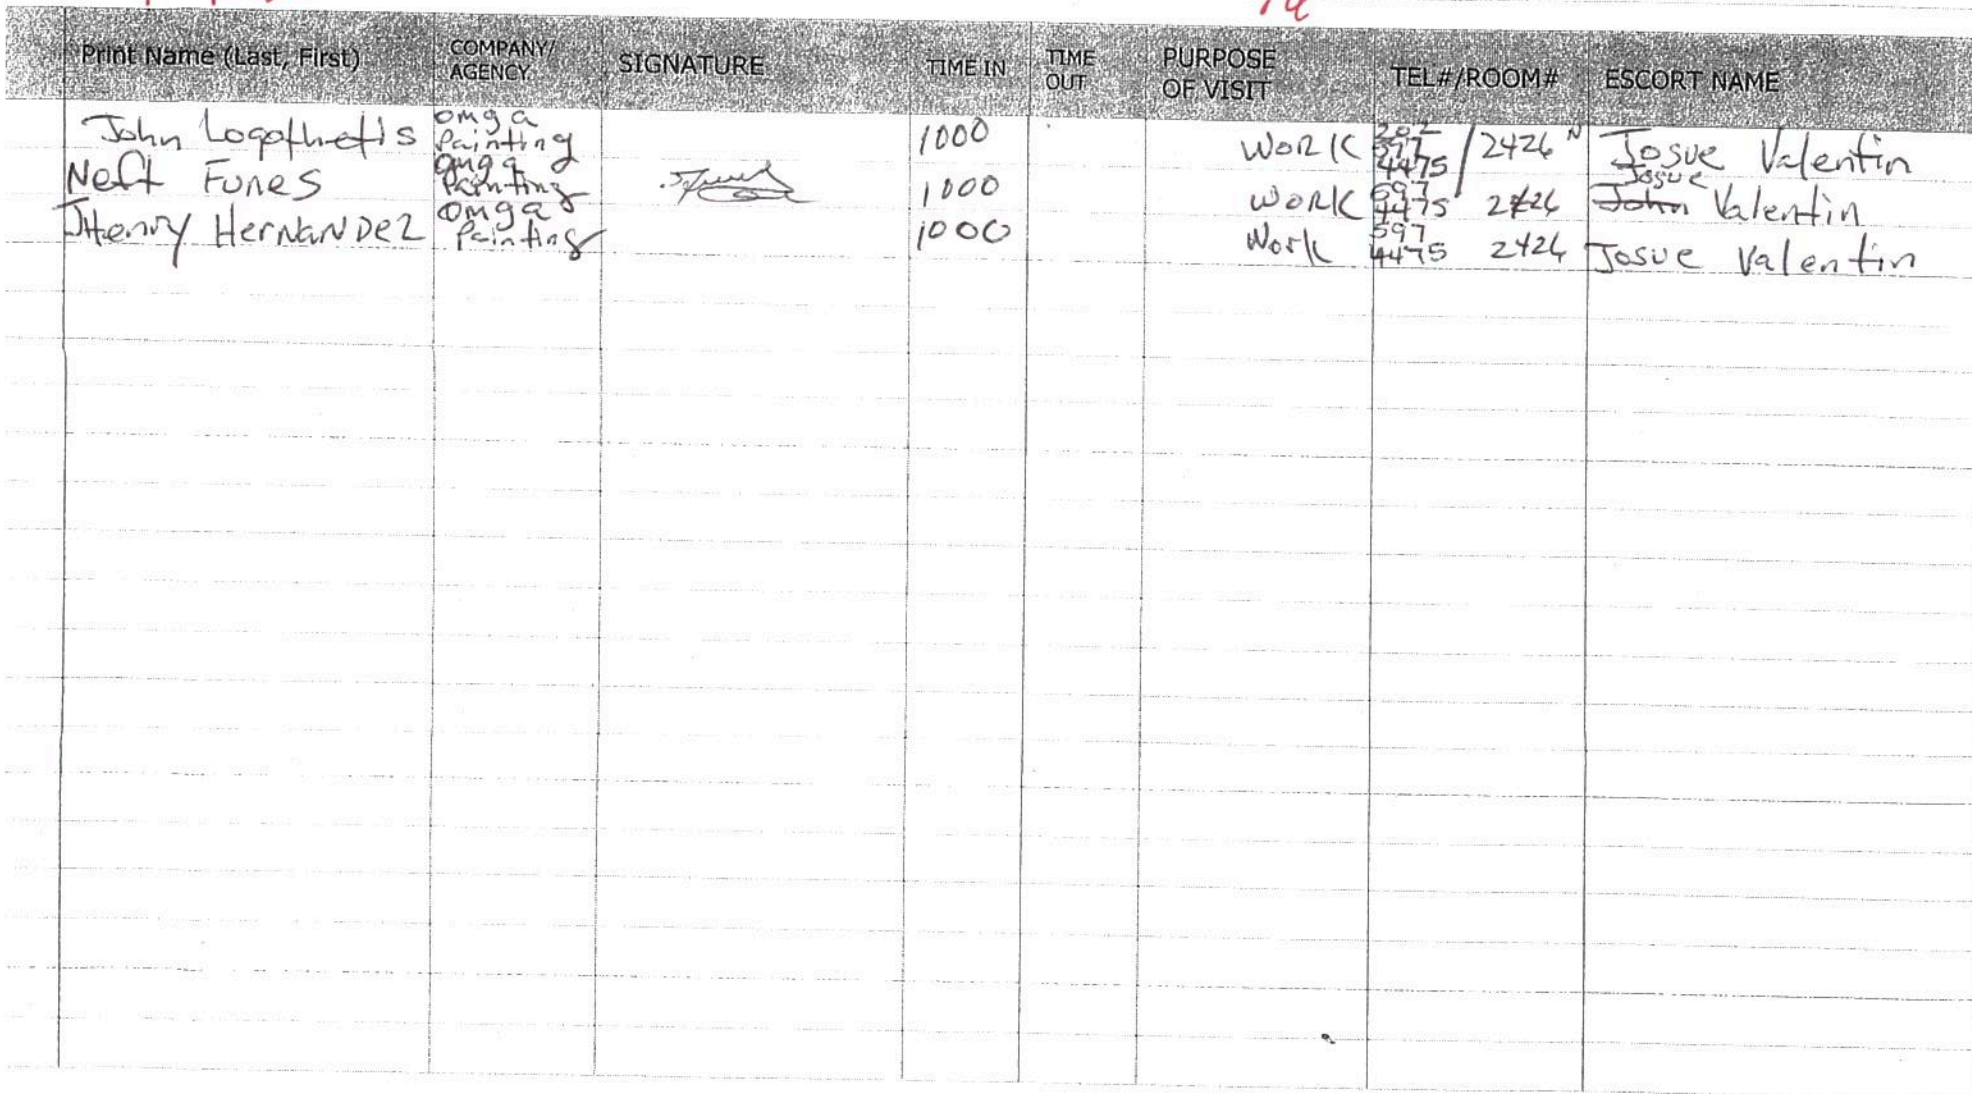 Print Name (Last, First) COMPANY/ AGENCY SIGNATURE TIME IN TIME OUT PURPOSE OF VISIT TEL#/ROOM# ESCORT NAME
John Logothetis Omga Painting 1000 Work 202 597 4475 / 2426 N Josue Valentin
Neft Funes Omga Painting 1000 Work 597 4475 2426 John Josue Valentin
JHenry HerNaNDez Omga Painting 1000 Work 597 4475 2426 Josue Valentin